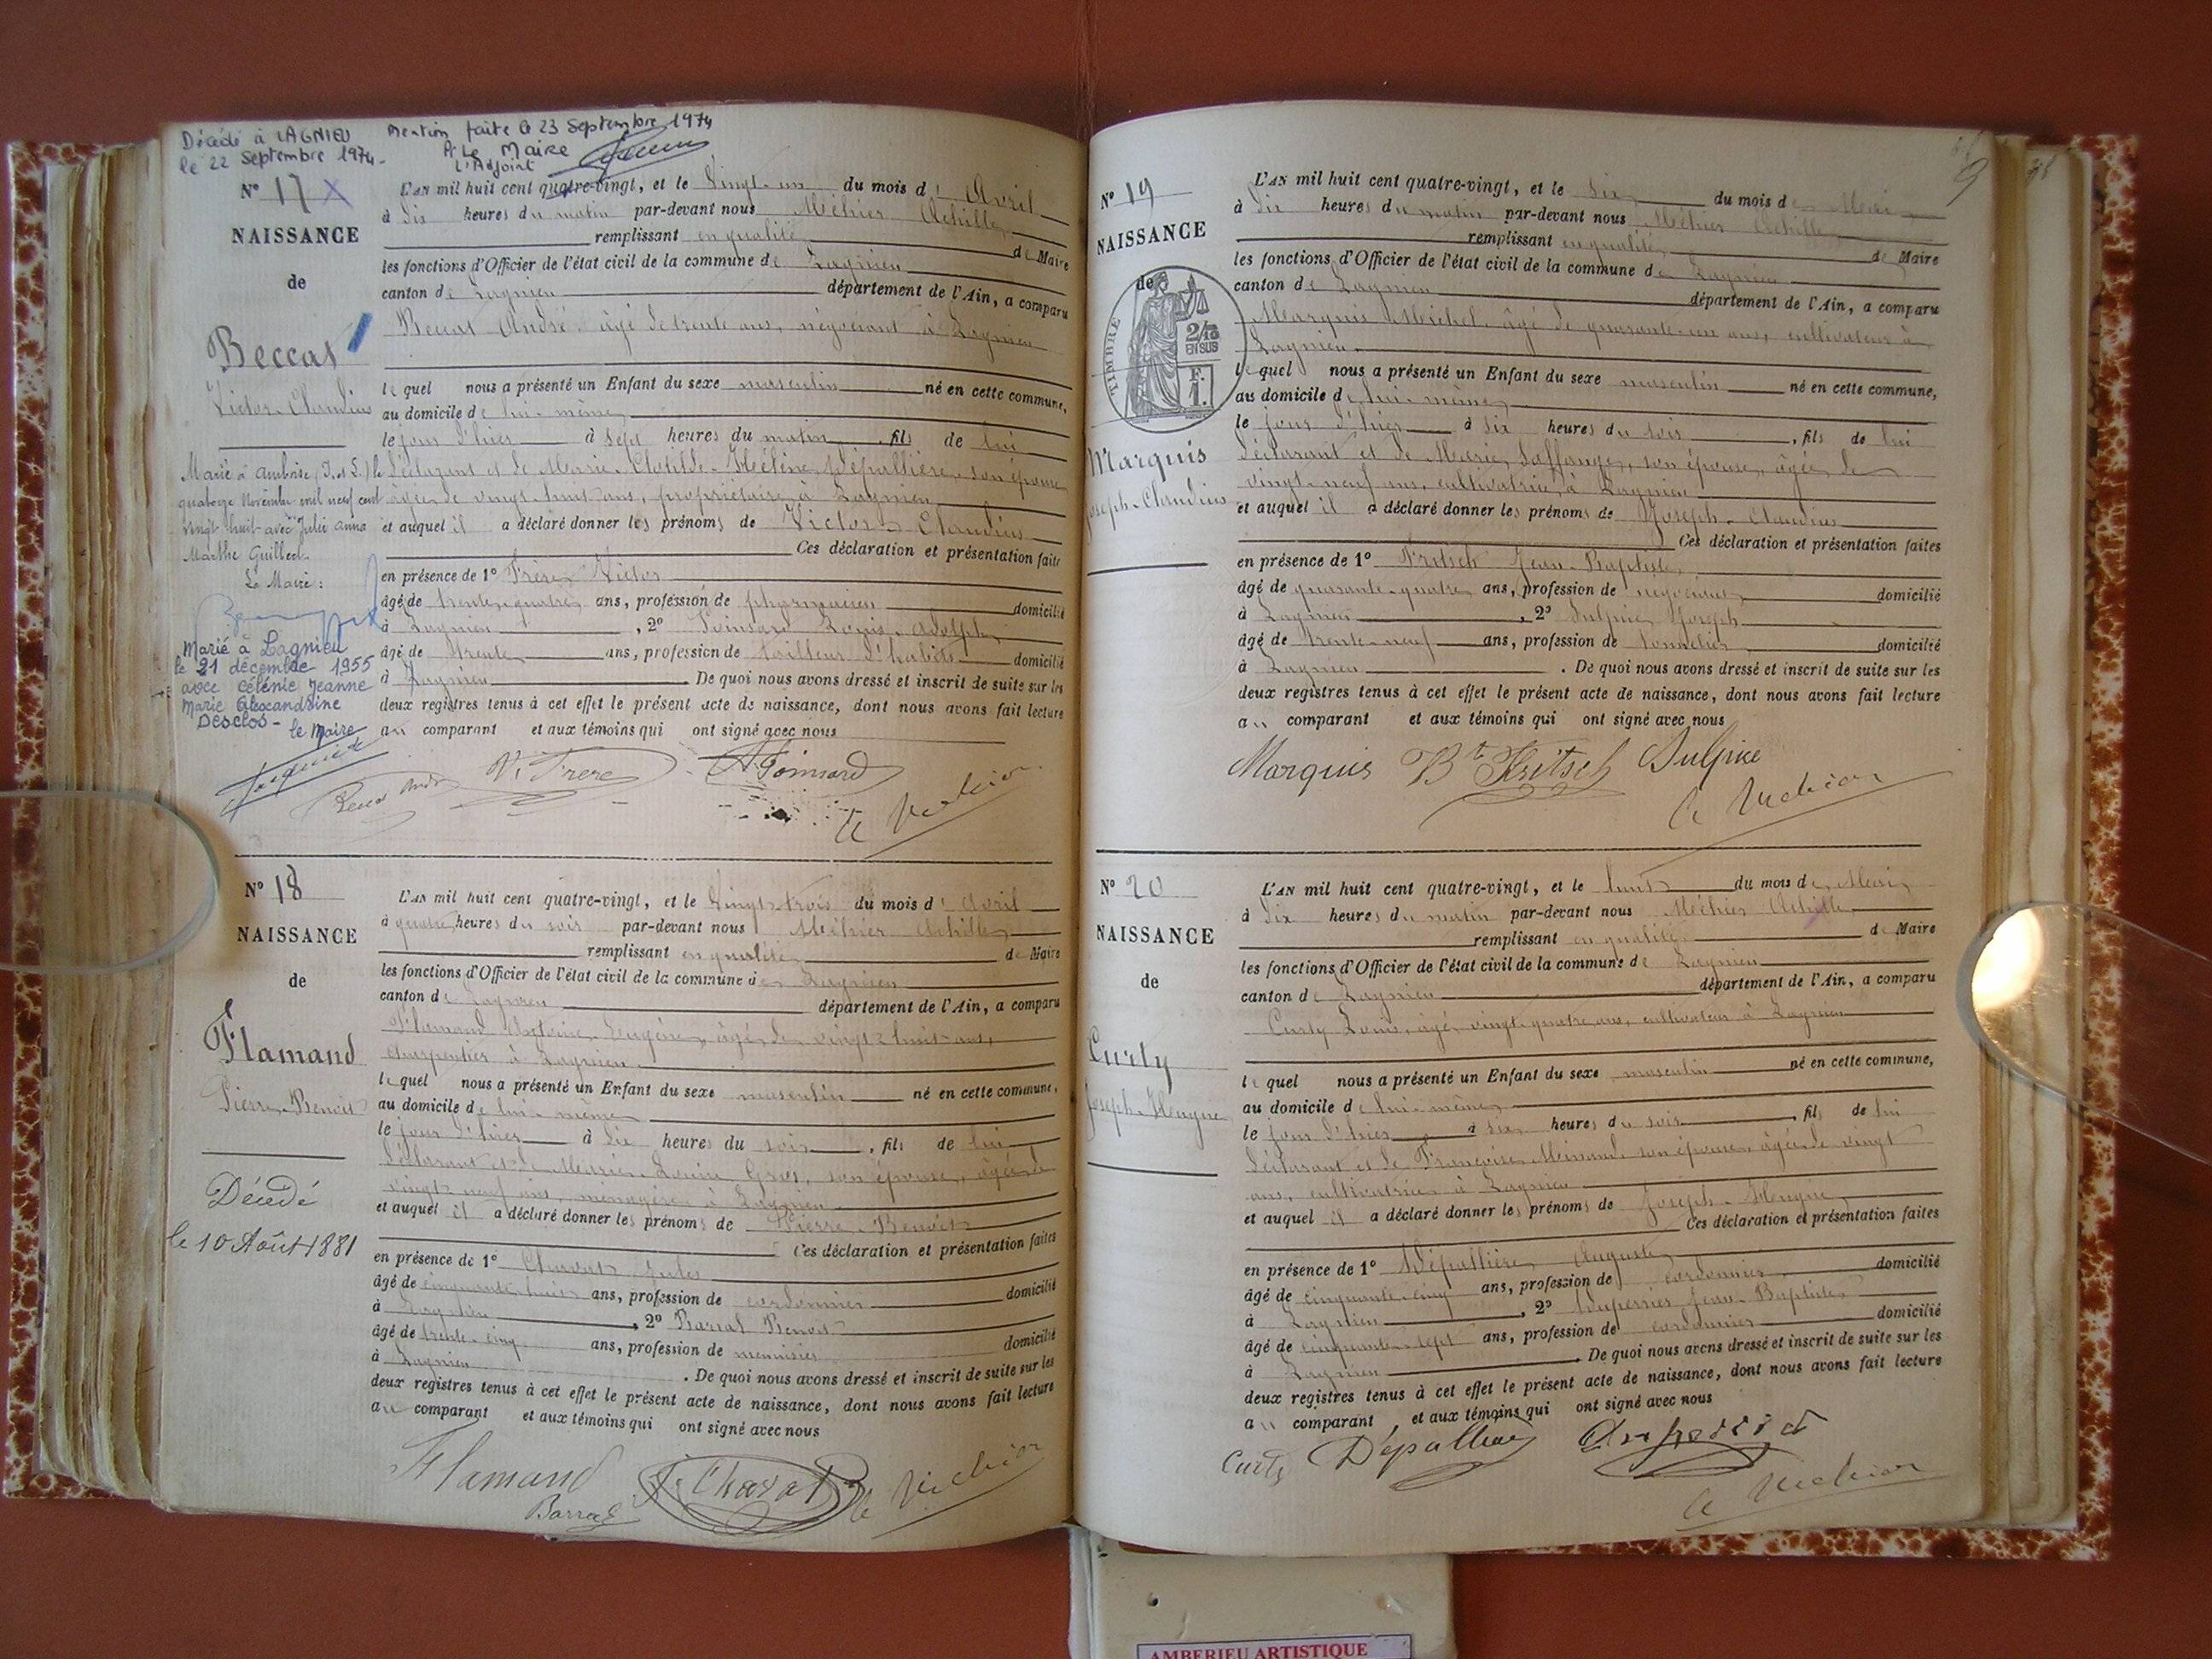 Décédé à LAGNIEU
le 22 Septembre 1974.
Mention faite le 23 Septembre 1974
P. Le Maire
L'Adjoint
N° 17
NAISSANCE
de
Beccat
Victor-Claudius
Marié à Amboise (I. et L.) le
quatorze Novembre mil neuf cent
vingt huit avec Julie Anna
Marthe
Le Maire :
Marié à Lagnieu
le 21 décembre 1955
avec Célénie Jeanne
Marie Alexandrine
DESCLOS -
le Maire
L'AN mil huit cent quatre-vingt, et le vingt-un du mois d'Avril
à dix heures du matin par-devant nous Méhier Achille
remplissant en qualité de Maire
les fonctions d'Officier de l'état civil de la commune de Lagnieu
canton de Lagnieu département de l'Ain, a comparu
Beccat André âgé de trente ans, négociant à Lagnieu
lequel nous a présenté un Enfant du sexe masculin né en cette commune,
au domicile de lui-même
le jour d'hier à sept heures du matin, fils de lui
déclarant et de Marie-Clotilde-Hélène Dépallière, son épouse
âgée de vingt-huit ans, propriétaire à Lagnieu
et auquel il a déclaré donner les prénoms de Victor-Claudius
Ces déclaration et présentation faites
en présence de 1° Frère Victor
âgé de trente-quatre ans, profession de pharmacien domicilié
à Lagnieu, 2° Poinsard Louis-Adolphe
âgé de trente ans, profession de tailleur d'habits domicilié
à Lagnieu. De quoi nous avons dressé et inscrit de suite sur les
deux registres tenus à cet effet le présent acte de naissance, dont nous avons fait lecture
au comparant et aux témoins qui ont signé avec nous
V. Frere A. Poinsard
N° 18
NAISSANCE
de
Flamand
Pierre-Benoit
Décédé
le 10 Août 1881
L'AN mil huit cent quatre-vingt, et le vingt-trois du mois d'Avril
à quatre heures du soir par-devant nous Méhier Achille
remplissant en qualité de Maire
les fonctions d'Officier de l'état civil de la commune de Lagnieu
canton de Lagnieu département de l'Ain, a comparu
Flamand Antoine-Eugène, âgé de vingt-huit ans,
charpentier à Lagnieu
lequel nous a présenté un Enfant du sexe masculin né en cette commune,
au domicile de lui-même
le jour d'hier à six heures du soir, fils de lui
déclarant et de Marie-Louise Gros, son épouse, âgée de
vingt-neuf ans, ménagère à Lagnieu
et auquel il a déclaré donner les prénoms de Pierre-Benoit
Ces déclaration et présentation faites
en présence de 1° Charvat Jules
âgé de cinquante-huit ans, profession de cordonnier domicilié
à Lagnieu, 2° Barral Benoit
âgé de trente-cinq ans, profession de menuisier domicilié
à Lagnieu. De quoi nous avons dressé et inscrit de suite sur les
deux registres tenus à cet effet le présent acte de naissance, dont nous avons fait lecture
au comparant et aux témoins qui ont signé avec nous
Flamand
Barral
9
N° 19
NAISSANCE
de
TIMBRE
2/10
EN SUS
F.
1.
Marquis
Joseph-Claudius
L'AN mil huit cent quatre-vingt, et le six du mois de Mai
à dix heures du matin par-devant nous Méhier Achille
remplissant en qualité de Maire
les fonctions d'Officier de l'état civil de la commune de Lagnieu
canton de Lagnieu département de l'Ain, a comparu
Marquis Michel, âgé de quarante-un ans, cultivateur à
Lagnieu
lequel nous a présenté un Enfant du sexe masculin né en cette commune,
au domicile de lui-même
le jour d'hier à six heures du soir, fils de lui
déclarant et de Marie Laffange, son épouse, âgée de
vingt-neuf ans, cultivatrice à Lagnieu
et auquel il a déclaré donner les prénoms de Joseph-Claudius
Ces déclaration et présentation faites
en présence de 1° Fritsch Jean-Baptiste
âgé de quarante-quatre ans, profession de négociant domicilié
à Lagnieu, 2° Sulpice Joseph
âgé de trente-neuf ans, profession de tonnelier domicilié
à Lagnieu. De quoi nous avons dressé et inscrit de suite sur les
deux registres tenus à cet effet le présent acte de naissance, dont nous avons fait lecture
au comparant et aux témoins qui ont signé avec nous
Marquis Bt Fritsch Sulpice
N° 20
NAISSANCE
de
Curty
Joseph-Hugue
L'AN mil huit cent quatre-vingt, et le huit du mois de Mai
à dix heures du matin par-devant nous Méhier Achille
remplissant en qualité de Maire
les fonctions d'Officier de l'état civil de la commune de Lagnieu
canton de Lagnieu département de l'Ain, a comparu
Curty Louis, âgé vingt-quatre ans, cultivateur à Lagnieu
lequel nous a présenté un Enfant du sexe masculin né en cette commune,
au domicile de lui-même
le jour d'hier à six heures du soir, fils de lui
déclarant et de Françoise son épouse, âgée de vingt
ans, cultivatrice à Lagnieu
et auquel il a déclaré donner les prénoms de Joseph-Hugue
Ces déclaration et présentation faites
en présence de 1° Dépallière Auguste
âgé de cinquante-cinq ans, profession de cordonnier domicilié
à Lagnieu, 2° Duperrier Jean-Baptiste
âgé de cinquante-sept ans, profession de cordonnier domicilié
à Lagnieu. De quoi nous avons dressé et inscrit de suite sur les
deux registres tenus à cet effet le présent acte de naissance, dont nous avons fait lecture
au comparant et aux témoins qui ont signé avec nous
Curty
AMBERIEU ARTISTIQUE